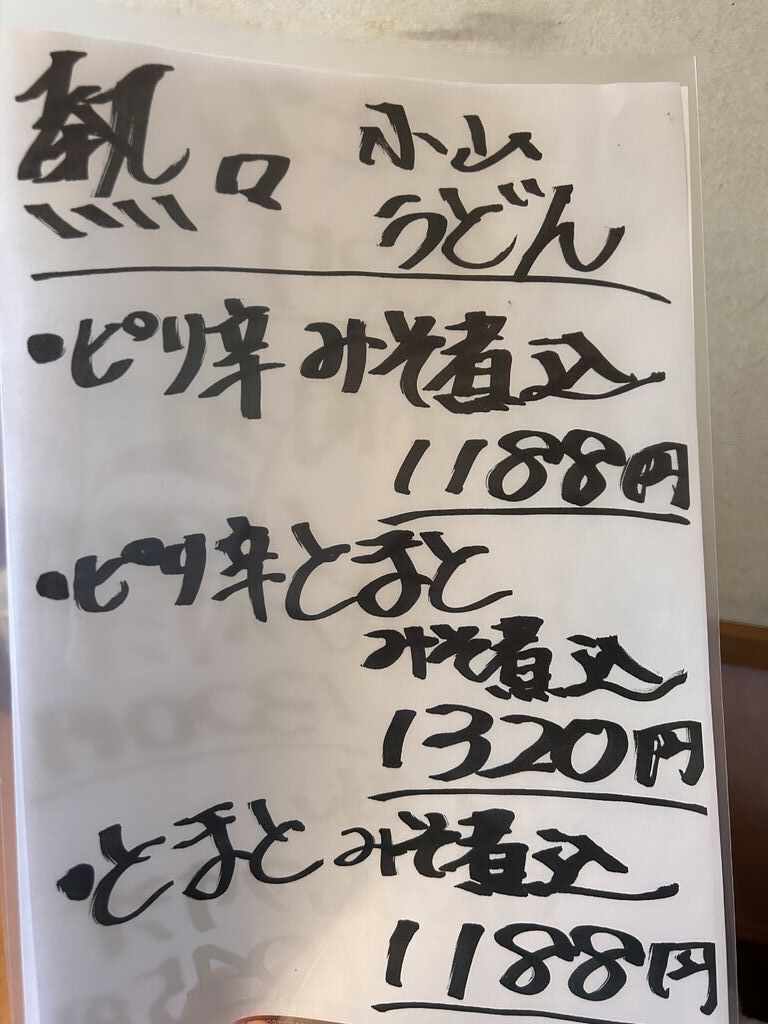 熱々 小山
うどん
・ピリ辛みそ煮込
1188円
・ピリ辛とまと
みそ煮込
1320円
・とまとみそ煮込
1188円